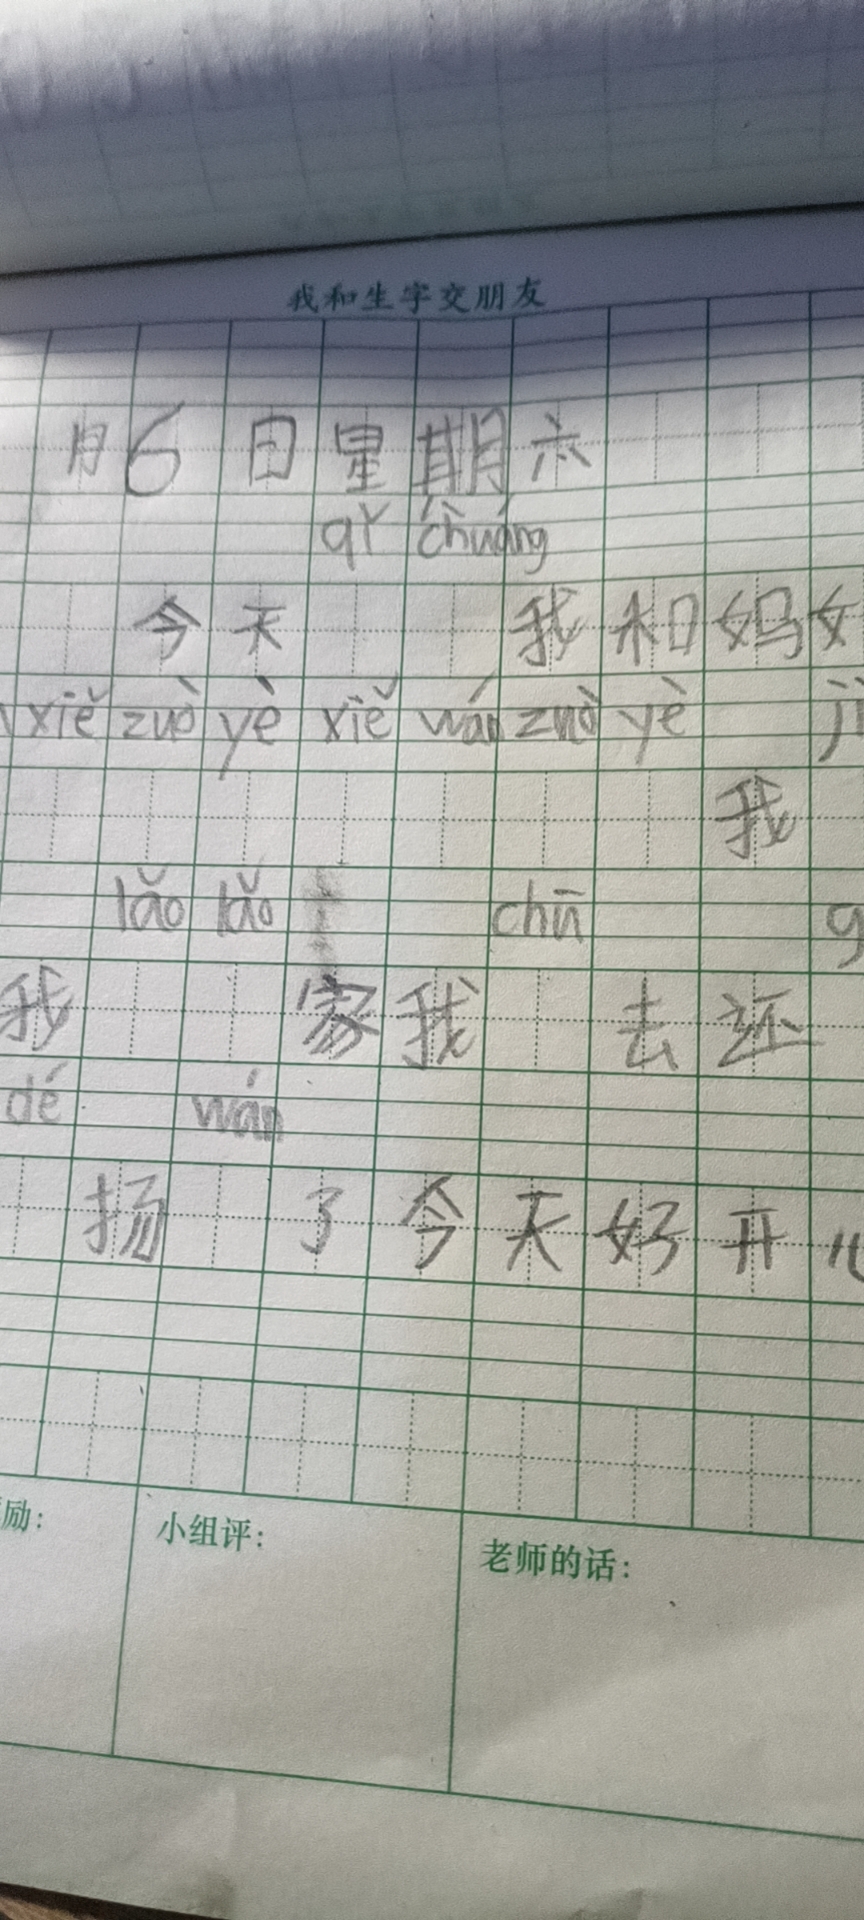 我和生字交朋友
月6日星期六
qǐ chuáng
今天 我和妈
xiě zuò yè xiě wán zuò yè
我
lǎo lǎo chū
我 家我 去还
dé wán
扬 了今天好开心
励:
小组评:
老师的话: